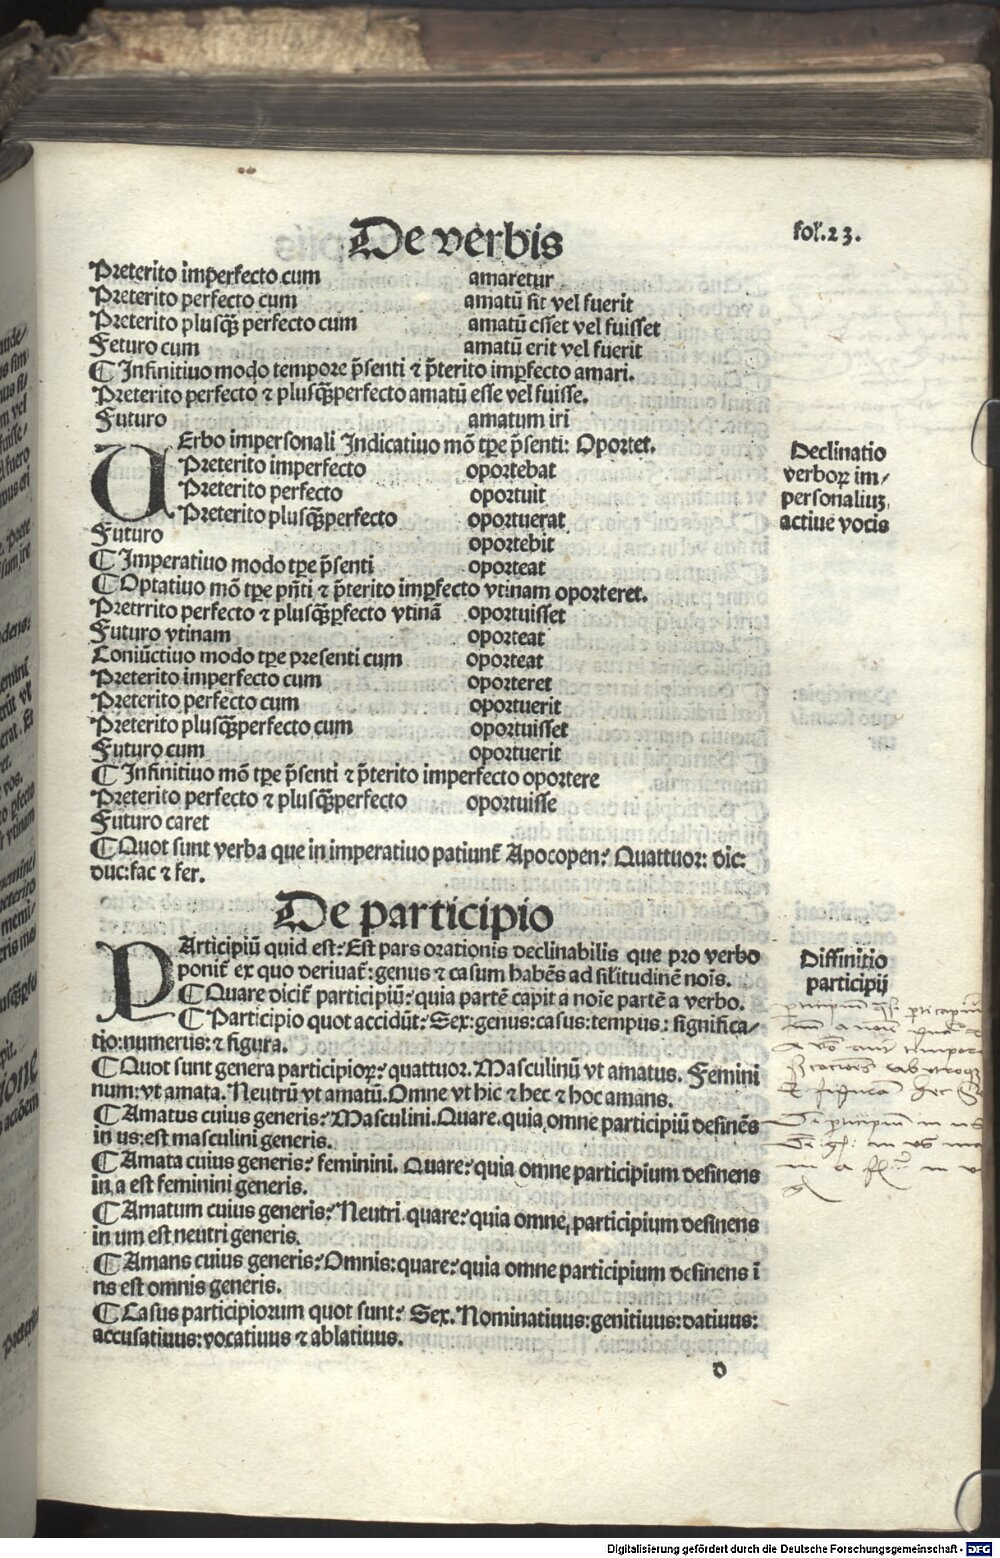 De verbis
fol.23.
Preterito imperfecto cum amaretur
Preterito perfecto cum amatū sit vel fuerit
Preterito plusq̄ꝫ perfecto cum amatū esset vel fuisset
Feturo cum amatū erit vel fuerit
¶ Infinitiuo modo tempore p̄senti ⁊ p̄terito imꝑfecto amari.
Preterito perfecto ⁊ plusq̄ꝫperfecto amatū esse vel fuisse.
Futuro amatum iri
UErbo impersonali Indicatiuo mō tꝑe p̄senti: Oportet.
Preterito imperfecto oportebat
Preterito perfecto oportuit
Preterito plusq̄ꝫperfecto oportuerat
Futuro oportebit
¶ Imperatiuo modo tꝑe p̄senti oporteat
¶ Optatiuo mō tꝑe pn̄ti ⁊ p̄terito imꝑfecto vtinam oporteret.
Pretrrito perfecto ⁊ plusq̄ꝫꝑfecto vtinā oportuisset
Futuro vtinam oporteat
Coniūctiuo modo tꝑe presenti cum oporteat
Preterito imperfecto cum oporteret
Preterito perfecto cum oportuerit
Preterito plusq̄ꝫperfecto cum oportuisset
Futuro cum oportuerit
¶ Infinitiuo mō tꝑe p̄senti ⁊ p̄terito imperfecto oportere
Preterito perfecto ⁊ plusq̄ꝫperfecto oportuisse
Futuro caret
¶ Quot sunt verba que in imperatiuo patiunt̄ Apocopen? Quattuor: dic:
duc:fac ⁊ fer.
Declinatio
verboꝝ im/
personaliuꝫ
actiue vocis
De participio
PArticipiū quid est? Est pars orationis declinabilis que pro verbo
ponit̄ ex quo deriuat̄: genus ⁊ casum habēs ad sil̄itudinē nois̄.
¶ Quare dicit̄ participiū? quia partē capit a noīe partē a verbo.
¶ Participio quot accidūt? Sex: genus: casus: tempus: significa⸗
tio:numerus: ⁊ figura.
¶ Quot sunt genera participioꝝ? quattuor. Masculinū vt amatus. Femini
num: vt amata. Neutrū vt amatū. Omne vt hic ⁊ hec ⁊ hoc amans.
¶ Amatus cuius generis? Masculini. Quare. quia omne participiū desinēs
in us: est masculini generis.
¶ Amata cuius generis? feminini. Quare? quia omne participium desinens
in a est feminini generis.
¶ Amatum cuius generis? Neutri. quare? quia omne participium desinens
in um est neutri generis.
¶ Amans cuius generis? Omnis: quare? quia omne participium desinens ī
ns est omnis generis.
¶ Casus participiorum quot sunt? Sex. Nominatiuus: genitiuus: datiuus:
accusatiuus: vocatiuus ⁊ ablatiuus.
Diffinitio
participij
d
Digitalisierung gefördert durch die Deutsche Forschungsgemeinschaft - DFG